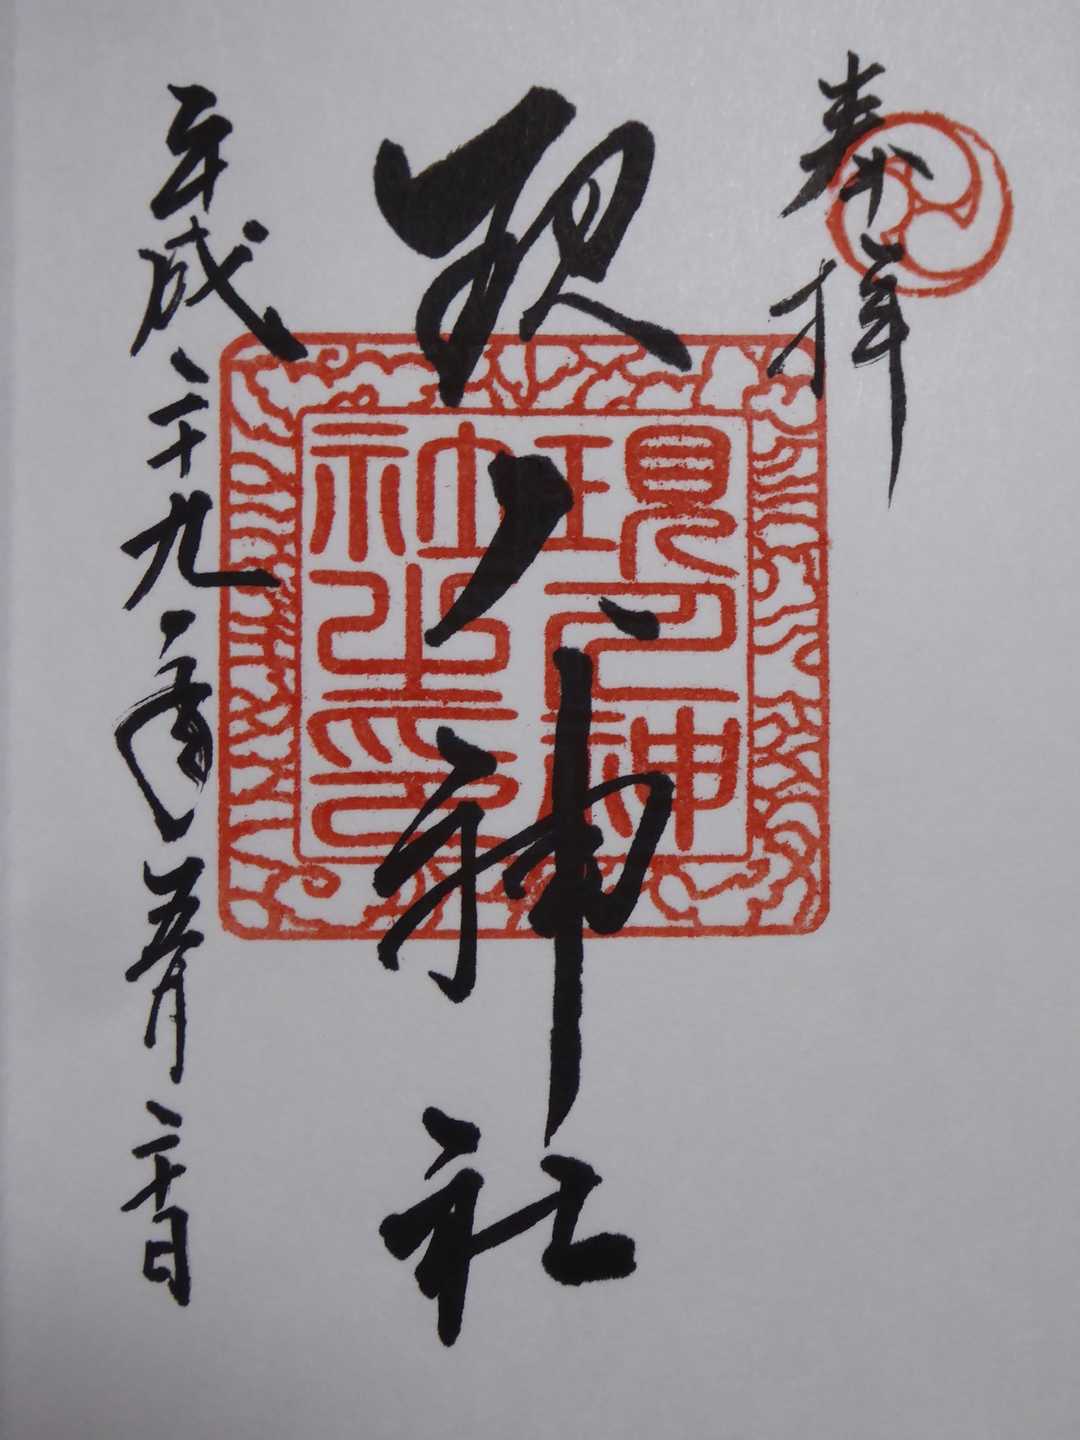 奉拝
現人神社
現人神
社之印
平成二十九年五月二十日